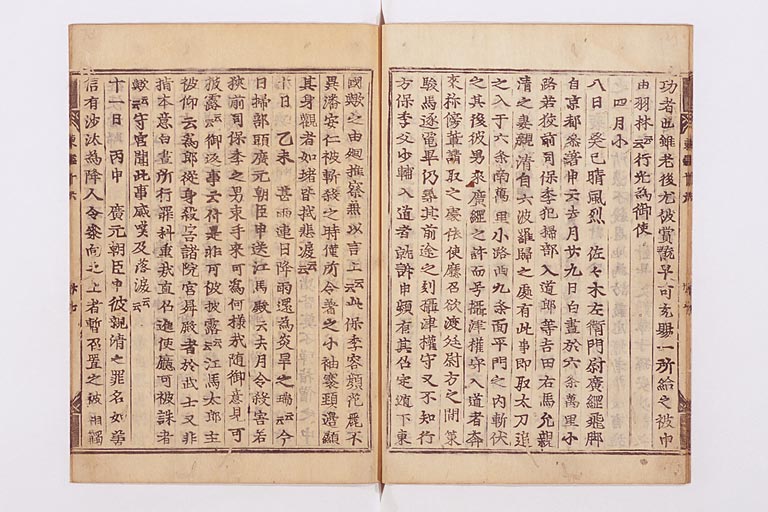 功者也雖老後尤被賞翫早可充賜一所給之被申
由羽林云云行光為御使
之四月小
八日 癸巳晴風烈 佐々木左衛門尉廣經飛脚
自京都參着申云去月廿九日白晝於六条萬里小
路若狹前司保季犯掃部入道郎等吉田右馬允親
清之妻親清自六波羅歸之處有此事即取太刀追
之入于六条南萬里小路西九条面平門之内斬伏
之其後彼男來廣經之許而号攝津權守入道者奔
來称傍輩請取之處依使廳召欲渡廷尉方之間策
駿馬逐電畢仍尋其前途之刻攝津權守又不知行
方保季父少輔入道者就訴申頗有其沾定遁下東
國歟之由廻推察無以言上云云此保季容顔花麗不
異潘安仁被斬殺之時僅所令着之小袖褰頚邊顕
其身觀者如堵皆拭悲涙云云
十日 乙未 甚雨連日降雨還為炎旱之瑞云云今
日掃部頭廣元朝臣申送江馬殿云去月令殺害若
狹前司保季之男束手來可為何様哉随御意見可
披露云云御返事云付是非可被披露云云江馬太郎主
被仰云為郎從身殺害諸院宮昇殿者於武士又非
指本意白晝所行罪科重哉直召進使廳可被誅者
歟云云守宮聞此事感嘆及落涙云云
十一日 丙申 廣元朝臣申彼親清之罪名如
信有沙汰為降人令參向之上者暫召置之被相觸